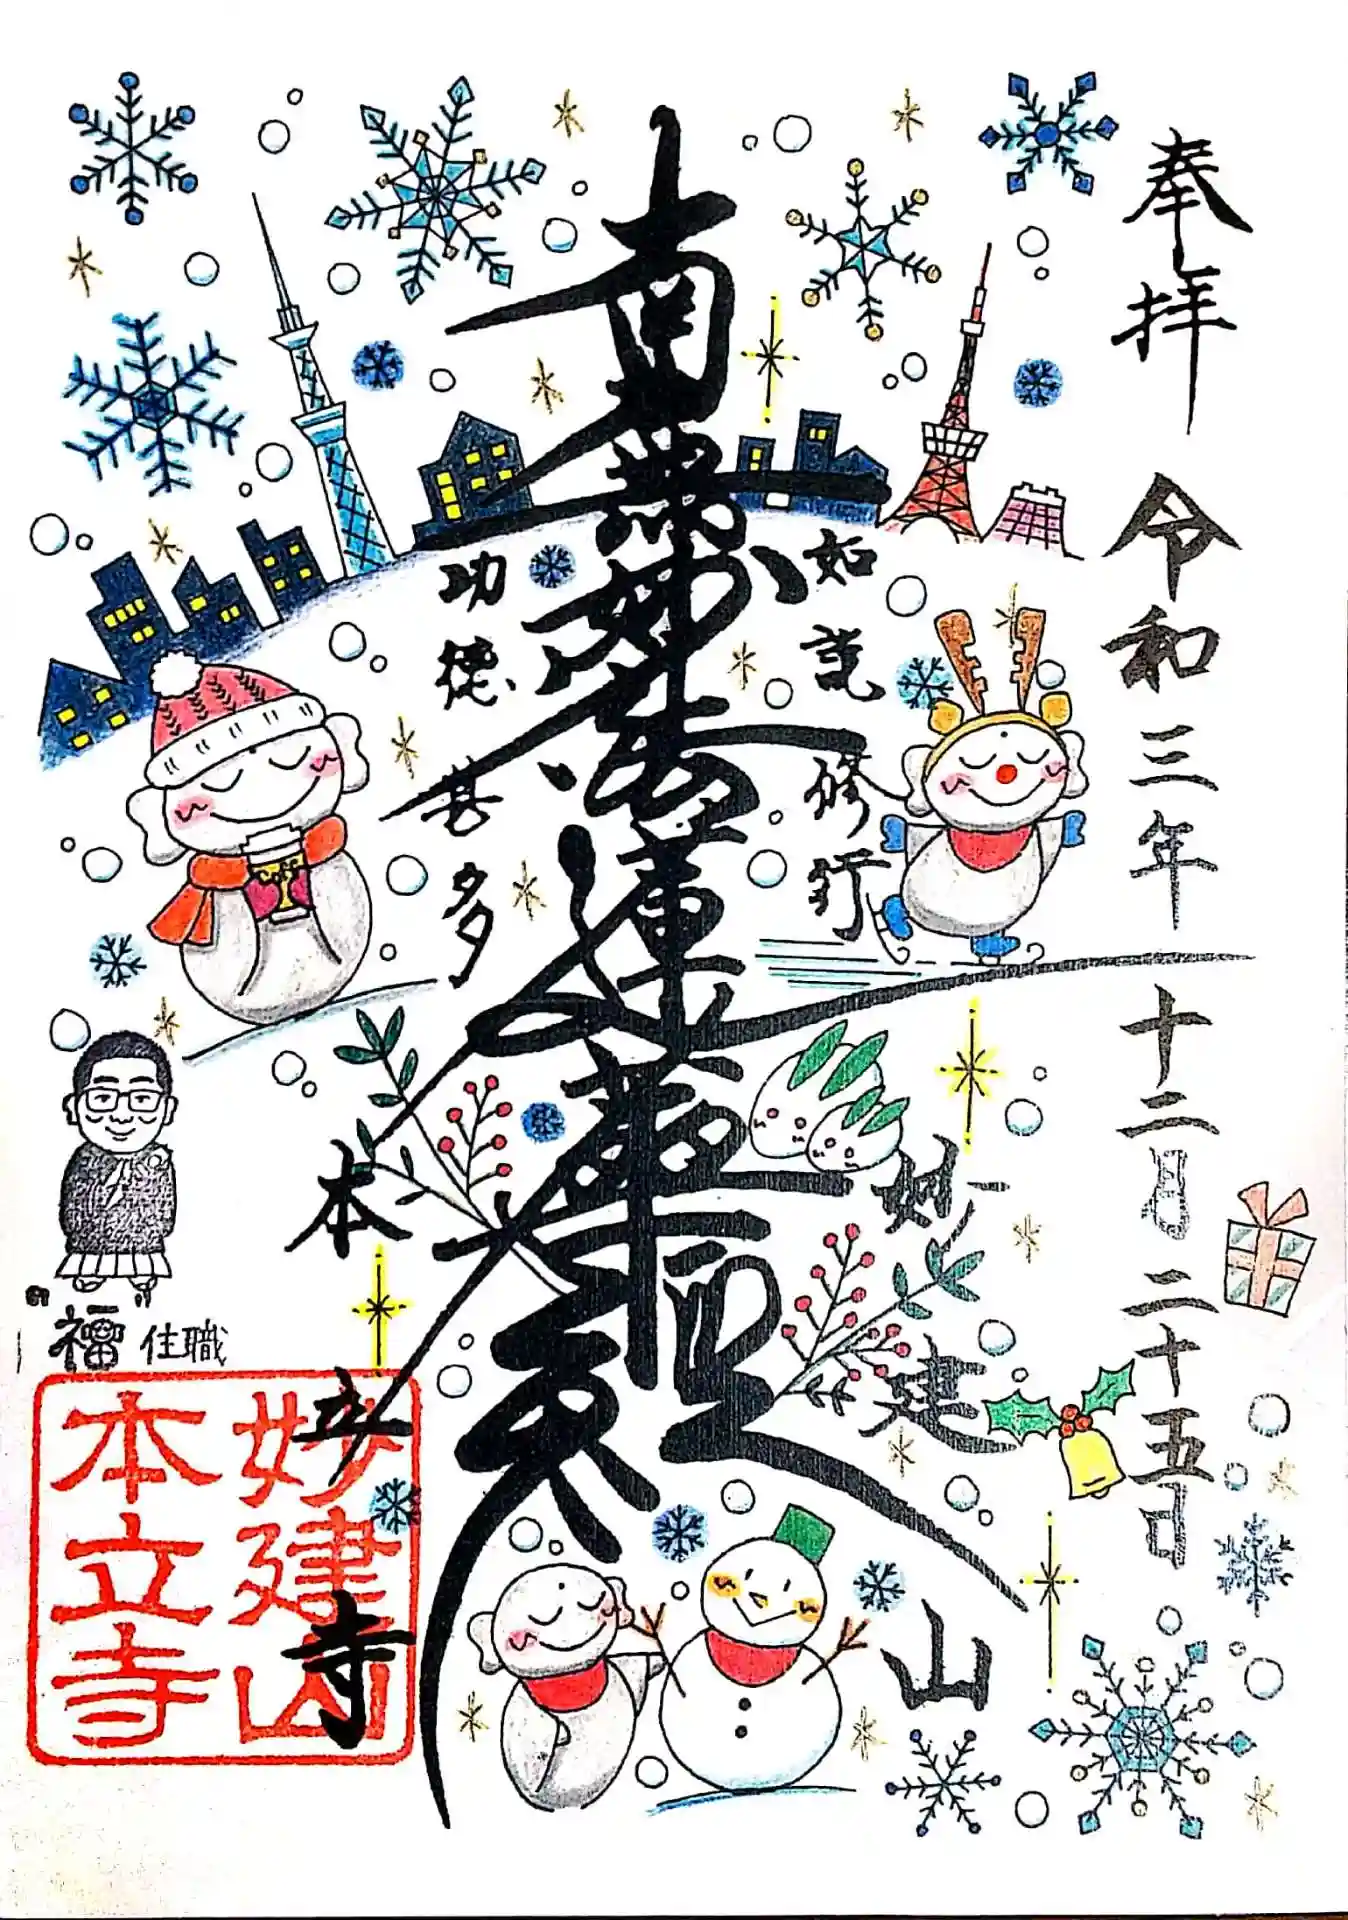 奉拝
令和三年十二月二十五日
如説修行
南無妙法蓮華経
功徳甚多
妙建山
本立寺
福 住職
妙建山
本立寺